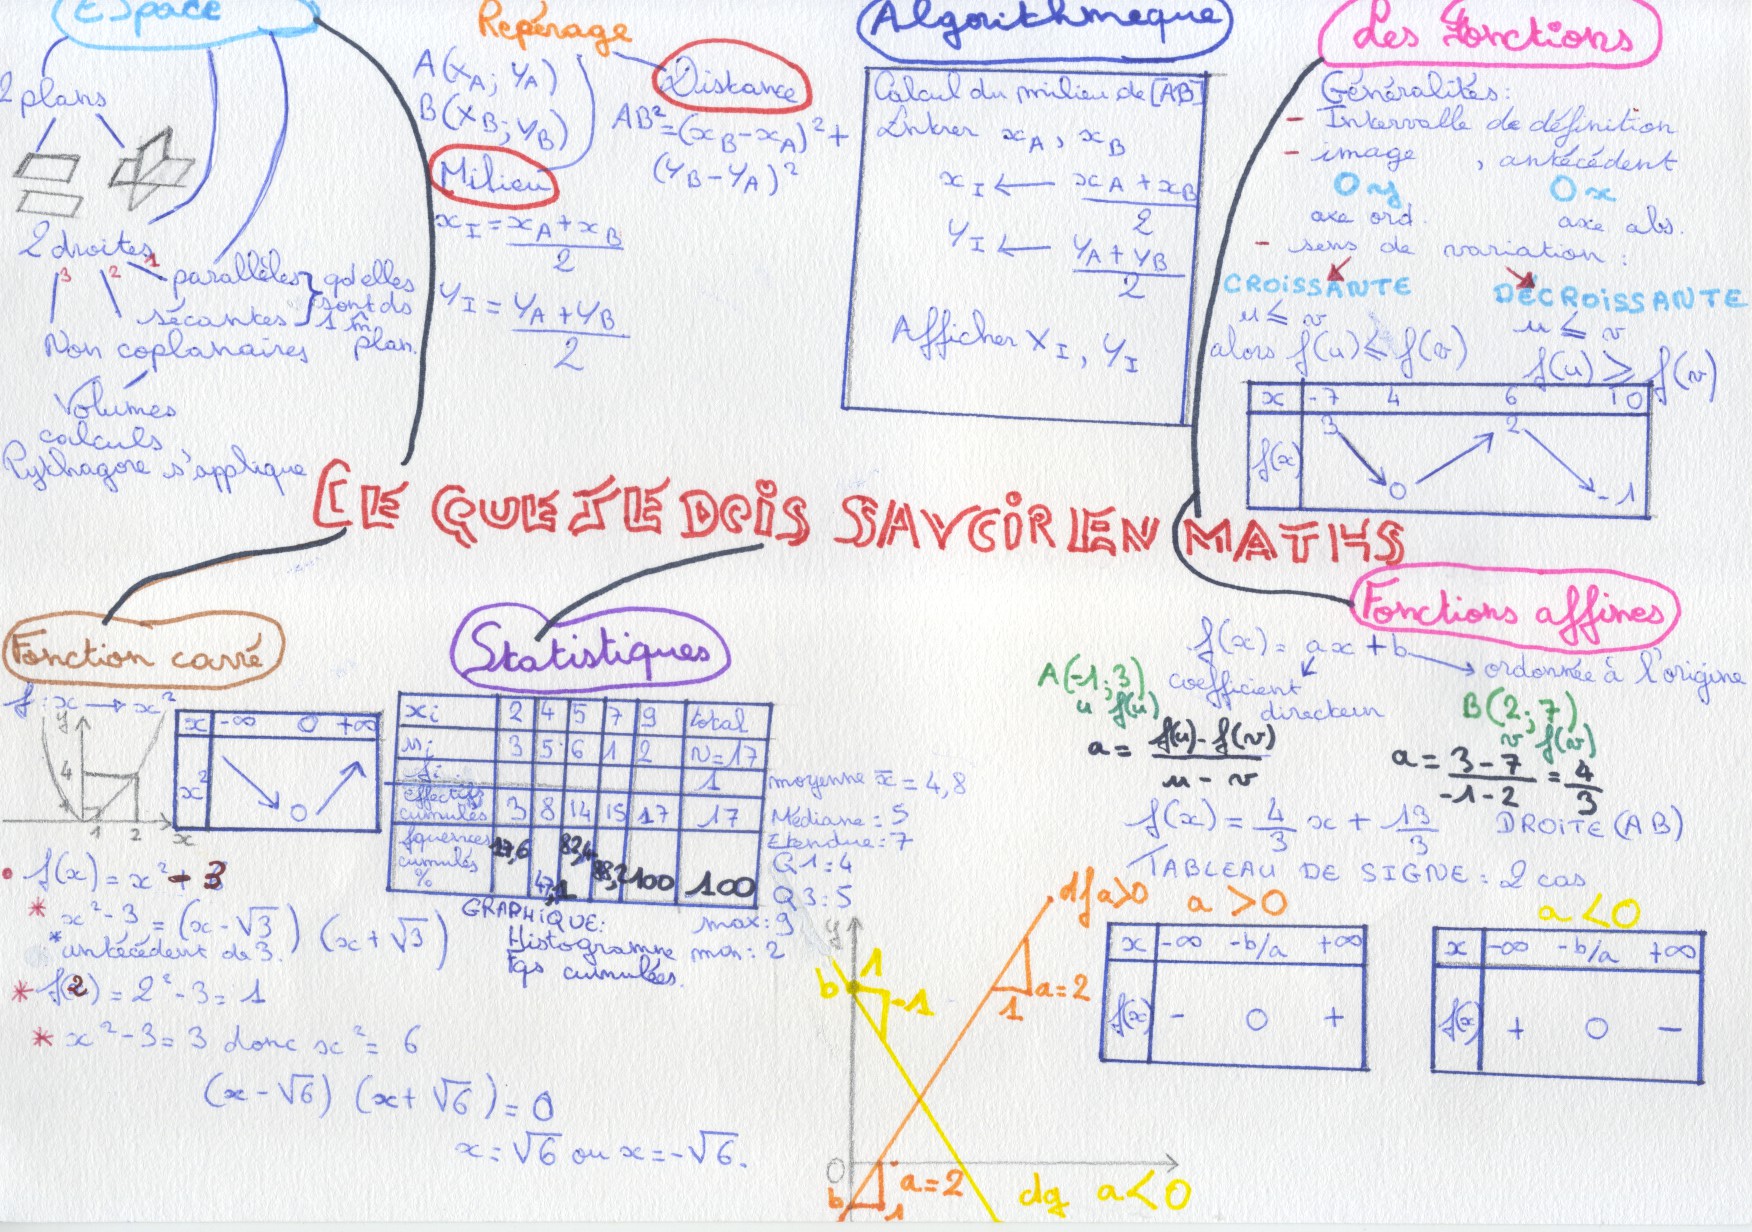 Espace
2 plans
2 droites
3 2 1
parallèles
sécantes
} qd elles
sont ds
1 m̂
plan.
Non coplanaires
Volumes
calculs
Pythagore s'applique
Repérage
A(xA; yA)
B(xB; yB)
Milieu
xI = xA + xB
2
yI = yA + yB
2
Distance
AB² = (xB - xA)² +
(yB - yA)²
Algorithmeque
Calcul du milieu de [AB]
Entrer xA, xB
xI ← xA + xB
2
yI ← yA + yB
2
Afficher xI, yI
Les Fonctions
Généralités:
- Intervalle de définition
- image , antécédent
Oy Ox
axe ord. axe abs.
- sens de variation :
CROISSANTE DÉCROISSANTE
u ≤ v u ≤ v
alors f(u) ≤ f(v) f(u) ≥ f(v)
x -7 4 6 10
f(x) 3 0 2 -1
CE QUE JE DOIS SAVOIR EN MATHS
Fonction carré
f : x → x²
y
4
1 2 x
x -∞ 0 +∞
x² 0
• f(x) = x² - 3
* x² - 3 = (x - √3) (x + √3)
* antécédent de 3.
* f(2) = 2² - 3 = 1
* x² - 3 = 3 donc x² = 6
(x - √6) (x + √6) = 0
x = √6 ou x = -√6.
Statistiques
xi 2 4 5 7 9 total
ni 3 5 6 1 2 N = 17
fi 1
effectifs
cumulés 3 8 14 15 17 17
fquences
cumulés
% 17,6 47,1 82,4 88,2 100 100
moyenne x̄ = 4,8
Médiane : 5
Etendue : 7
Q1 : 4
Q3 : 5
max : 9
min : 2
GRAPHIQUE:
Histogramme
Fqs cumulées.
Fonctions affines
f(x) = ax + b → ordonnée à l'origine
coefficient
directeur
A(-1; 3)
u f(u)
B(2; 7)
v f(v)
a = f(u) - f(v)
u - v
a = 3 - 7 = 4
-1 - 2 3
f(x) = 4/3 x + 13/3 DROITE (AB)
TABLEAU DE SIGNE : 2 cas
a > 0 a < 0
x -∞ -b/a +∞
f(x) - 0 +
x -∞ -b/a +∞
f(x) + 0 -
y
df a>0
b 1
-1
a = 2
1
0
a = 2
b 1
dg a < 0